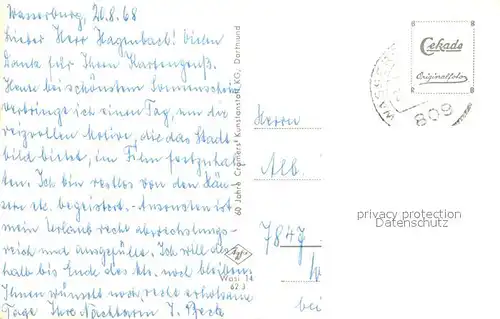 Wasserburg, 20.8.68
Lieber Herr Hagenbach! Vielen
Dank für Ihren Kartengruß.
Heute bei schönstem Sonnenschein
verbringe ich einen Tag, um die
reizvollen Motive, die das Stadt
bild bietet, im Film festzuhal
ten. Ich bin restlos von den Häu
sern etc. begeistert. Ansonsten ist
mein Urlaub recht abwechslungs-
reich und ausgefüllt. Ich will des
halb bis Ende des Mts. noch bleiben.
Ihnen wünscht noch recht erholsame
Tage Ihre Nachbarin
60 Jahre Cramers Kunstanstalt KG, Dortmund
Agfa
Wasi 14
62 J
Cekade
Originalfoto
WASSERB
809
Herrn
Alb.
7847
bei
privacy protection
Datenschutz